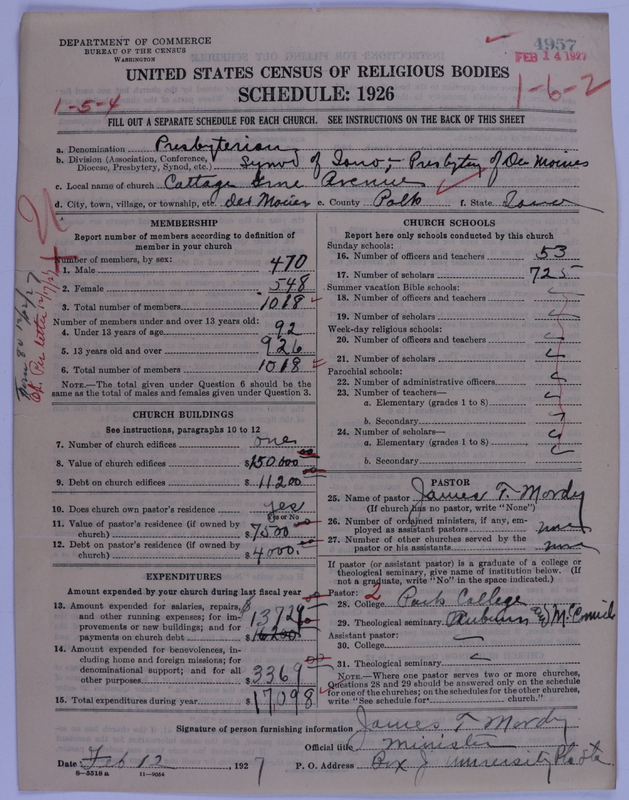 DEPARTMENT OF COMMERCE
BUREAU OF THE CENSUS
WASHINGTON
4957
FEB 14 1927
UNITED STATES CENSUS OF RELIGIOUS BODIES
SCHEDULE: 1926
1-5-4
1-6-2
FILL OUT A SEPARATE SCHEDULE FOR EACH CHURCH. SEE INSTRUCTIONS ON THE BACK OF THIS SHEET
a. Denomination Presbyterian
b. Division (Association, Conference, Diocese, Presbytery, Synod, etc.) Synod of Iowa, Presbytery of Des Moines
c. Local name of church Cottage Grove Avenue
d. City, town, village, or township, etc. Des Moines e. County Polk f. State Iowa
MEMBERSHIP
Report number of members according to definition of
member in your church
Number of members, by sex:
1. Male 470
2. Female 548
3. Total number of members 1018
Number of members under and over 13 years old:
4. Under 13 years of age 92
5. 13 years old and over 926
6. Total number of members 1018
NOTE.—The total given under Question 6 should be the
same as the total of males and females given under Question 3.
CHURCH BUILDINGS
See instructions, paragraphs 10 to 12
7. Number of church edifices one
8. Value of church edifices $150000
9. Debt on church edifices $11200
10. Does church own pastor's residence yes
Yes or No
11. Value of pastor's residence (if owned by
church) $7500
12. Debt on pastor's residence (if owned by
church) $4000
EXPENDITURES
Amount expended by your church during last fiscal year
13. Amount expended for salaries, repairs,
and other running expenses; for im-
provements or new buildings; and for
payments on church debt $13729
14. Amount expended for benevolences, in-
cluding home and foreign missions; for
denominational support; and for all
other purposes $3369
15. Total expenditures during year $17,098
CHURCH SCHOOLS
Report here only schools conducted by this church
Sunday schools:
16. Number of officers and teachers 53
17. Number of scholars 725
Summer vacation Bible schools:
18. Number of officers and teachers
19. Number of scholars
Week-day religious schools:
20. Number of officers and teachers
21. Number of scholars
Parochial schools:
22. Number of administrative officers
23. Number of teachers—
a. Elementary (grades 1 to 8)
b. Secondary
24. Number of scholars—
a. Elementary (grades 1 to 8)
b. Secondary
PASTOR
25. Name of pastor James T. Mordy
(If church has no pastor, write "None")
26. Number of ordained ministers, if any, em-
ployed as assistant pastors none
27. Number of other churches served by the
pastor or his assistants none
If pastor (or assistant pastor) is a graduate of a college or
theological seminary, give name of institution below. (If
not a graduate, write "No" in the space indicated.)
Pastor: 2
28. College Park College
29. Theological seminary Auburn McCormick
Assistant pastor:
30. College
31. Theological seminary
NOTE.—Where one pastor serves two or more churches,
Questions 28 and 29 should be answered only on the schedule
for one of the churches; on the schedules for the other churches,
write "See schedule for church."
Signature of person furnishing information James T. Mordy
Official title Minister
Date Feb 12, 1927 P. O. Address Box J University Pl. Sta.
8—5518a 11—9054